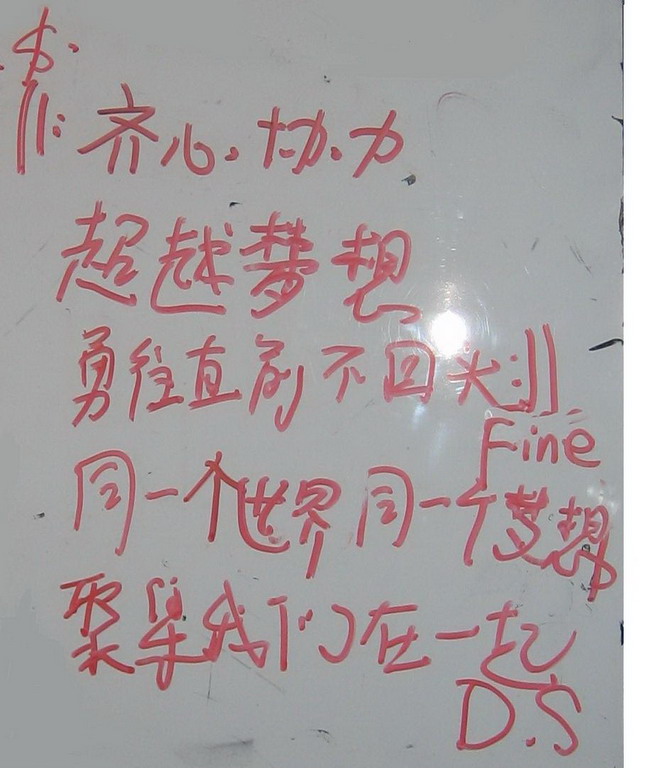 齐心协力
超越梦想
勇往直前不回头
Fine
同一个世界 同一个梦想
聚集我们在一起
D.S